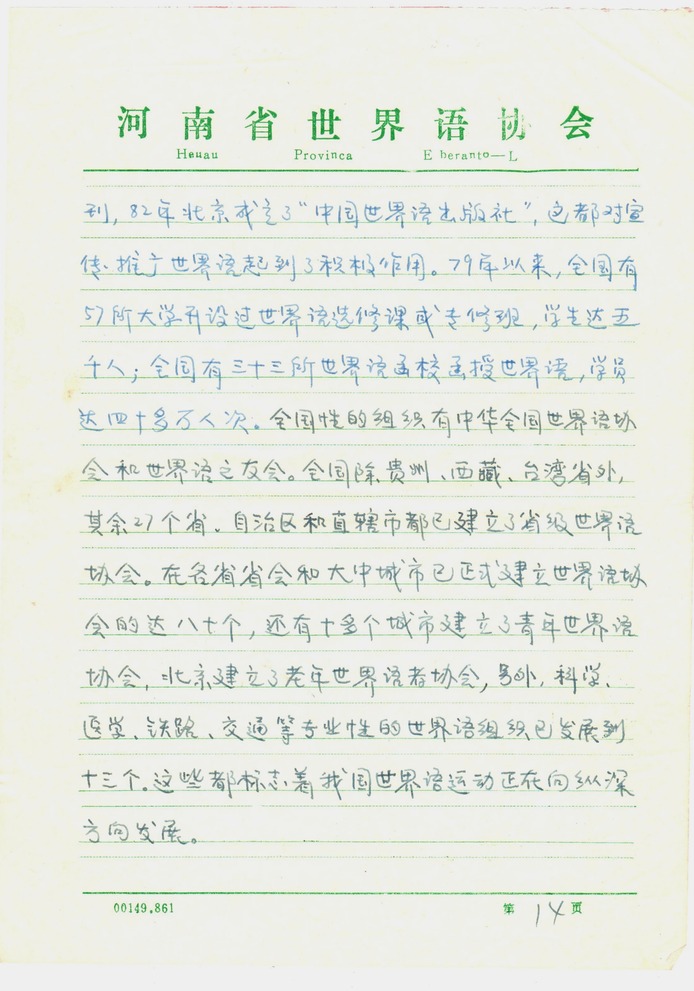 河南省世界语协会
Heuau Provinca E beranto—L
到，82年北京成立了“中国世界语出版社”，这都对宣
传、推广世界语起到了积极作用。79年以来，全国有
57所大学开设过世界语选修课或专修班，学生达五
千人；全国有三十三所世界语函校函授世界语，学员
达四十多万人次。全国性的组织有中华全国世界语协
会和世界语之友会。全国除贵州、西藏、台湾省外，
其余27个省、自治区和直辖市都已建立了省级世界语
协会。在各省省会和大中城市已正式建立世界语协
会的达八十个，还有十多个城市建立了青年世界语
协会，北京建立了老年世界语者协会，另外，科学、
医学、铁路、交通等专业性的世界语组织已发展到
十三个。这些都标志着我国世界语运动正在向纵深
方向发展。
00149.861 第 14 页